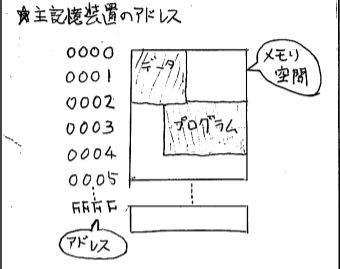 ☆主記憶装置のアドレス
0000
0001
0002
0003
0004
0005
FFFF
データ
プログラム
メモリ
空間
アドレス